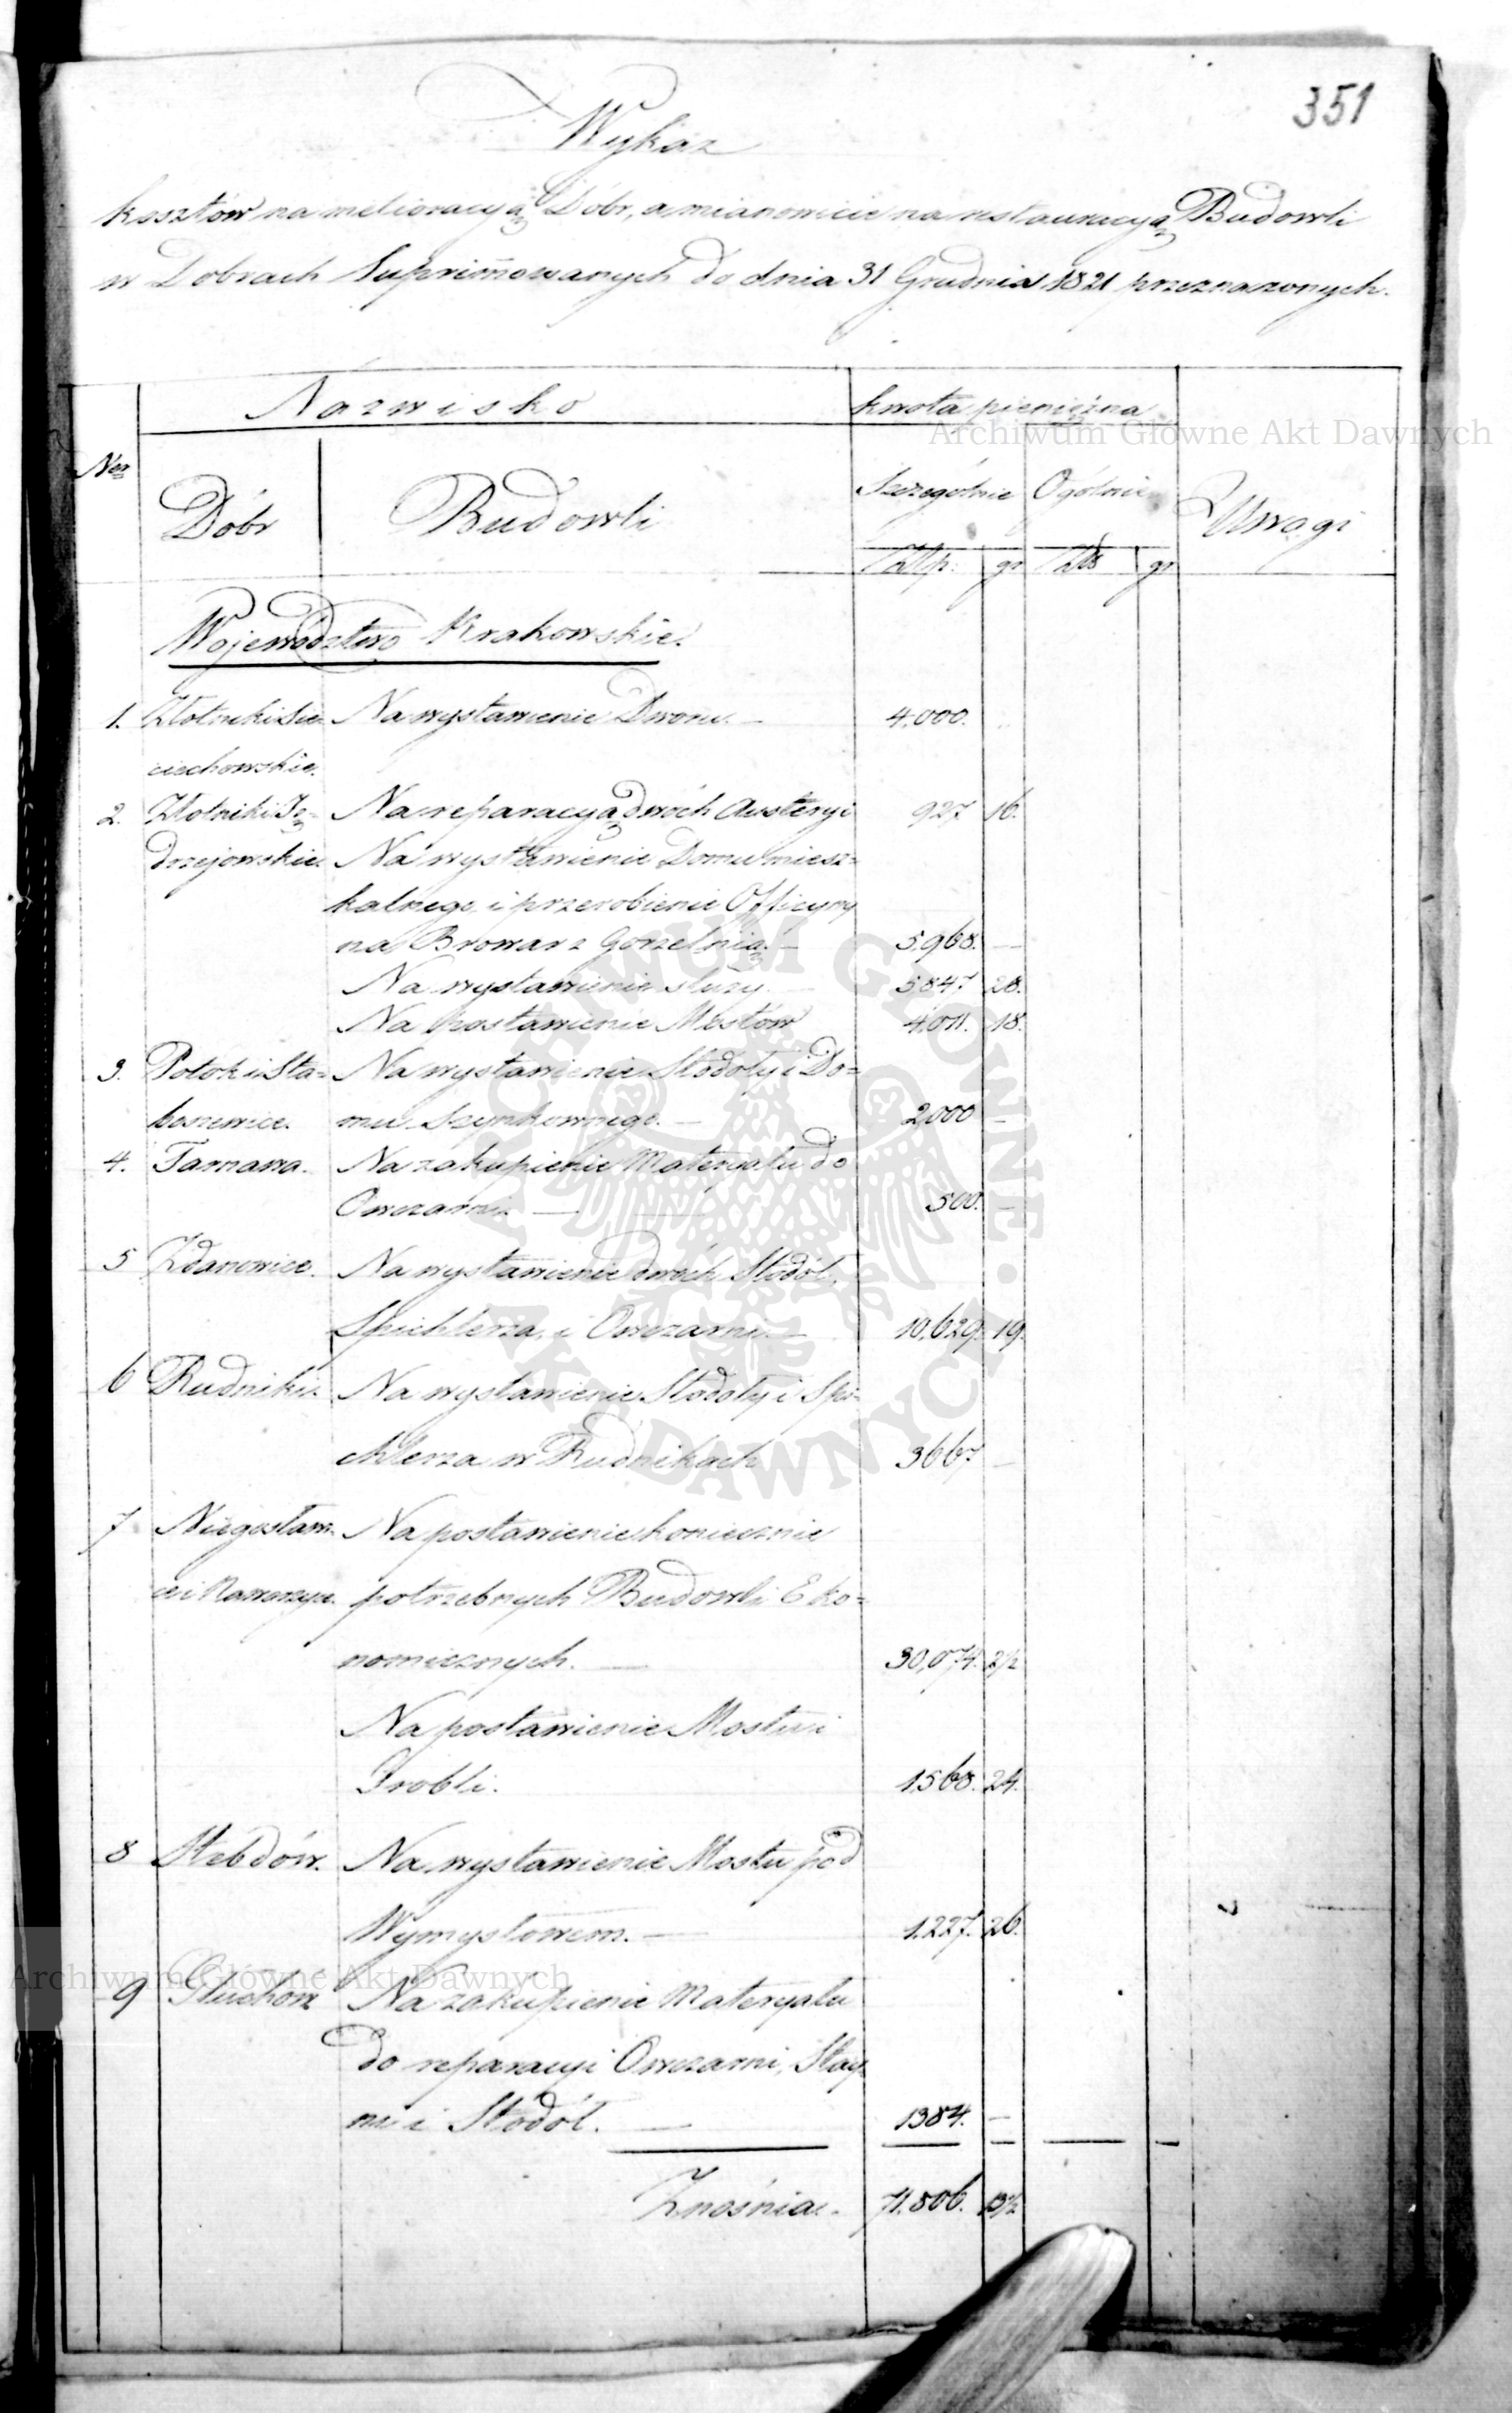 351
Wykaz
kosztów na melioracyą Dóbr, a mianowicie na restauracyą Budowli
w Dobrach Suprimowanych do dnia 31 Grudnia 1821 przeznaczonych.
Nazwisko kwota pieniężna
Archiwum Główne Akt Dawnych
Nro Dóbr Budowli Szczególnie Ogólnie Uwagi
Złłp: gr Złłp gr
Województwo Krakowskie.
1. Złotniki Sie= Na wystawienie Dworu. 4.000.
ciechowskie.
2. Złotniki Ję= Na reparacyą dwóch Austeryi 927 16.
drzejowskie. Na wystawienie Domu miesz=
kalnego i przerobienie Officyny
na Browar z Gorzelnią. 5.968. —
Na wystawienie śluzy 5.847 28.
Na postawienie Mostów 4.011. 18.
3. Potok i Sta= Na wystawienie Stodoły i Do=
boszewice. mu Szynkownego. 2,000 —
4. Tarnawa. Na zakupienie Materyału do
Owczarni. 500. —
5 Zdanowice. Na wystawienie dwóch Stodół,
Spichlerza, i Owczarni. 10,629. 19.
6 Rudniki. Na wystawienie Stodoły i Spi=
chlerza w Rudnikach 3667 —
7 Niegosław= Na postawienie koniecznie
ice i Nawarzyce. potrzebnych Budowli Eko=
nomicznych. 30,074. 2½
Na postawienie Mostu i
Grobli. 1568. 24.
8 Słebdów. Na wystawienie Mostu pod
Wymysłowem. 1.227. 26.
Archiwum Główne Akt Dawnych
9 Głuchów Na zakupienie Materyału
do reparacyi Owczarni, Stay=
ni i Stodół. 1384. —
Znośnia. 71.806. 13½
ARCHIWUM GŁÓWNE AKT DAWNYCH